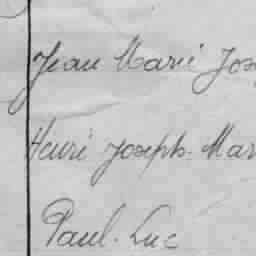 Jean Marie Jos
Henri Joseph-Mar
Paul-Luc